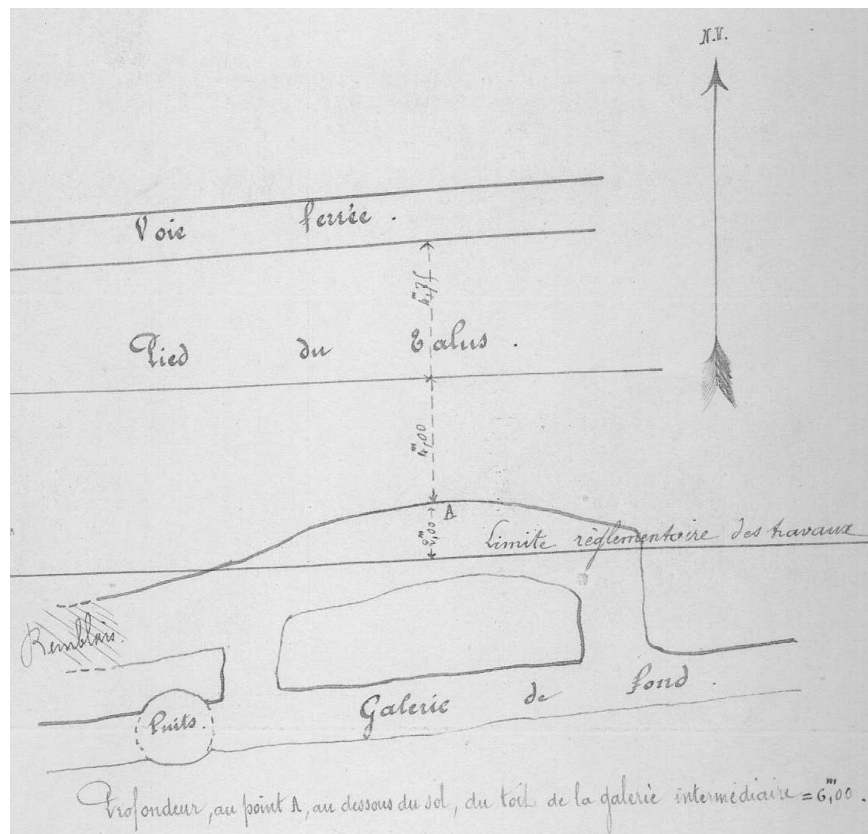 N.V.
Voie ferrée.
Pied du Talus.
4,00
A
2,00
Limite réglementaire des travaux
Remblais.
Puits.
Galerie de fond.
Profondeur, au point A, au dessous du sol, du toit de la galerie intermédiaire = 6,00.